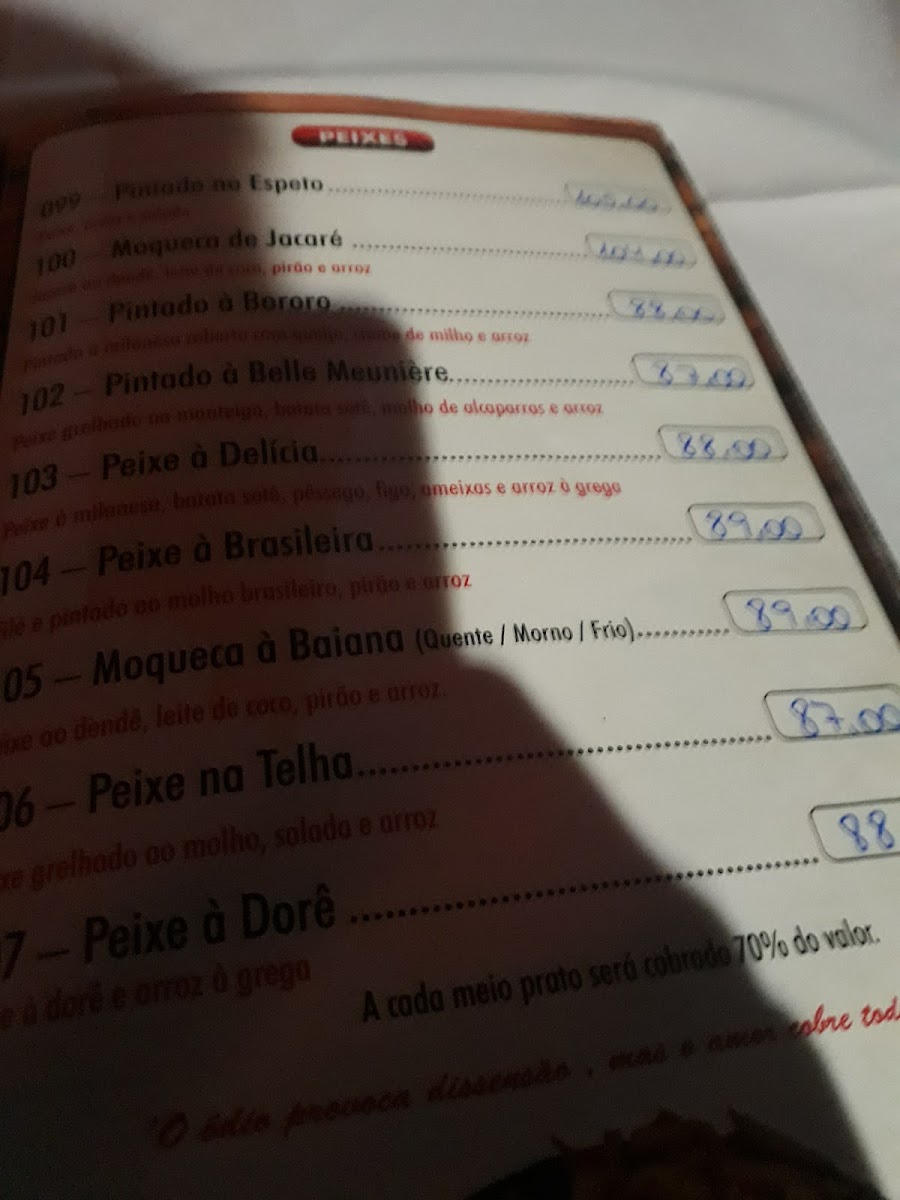 PEIXES
099 – Pintado no Espeto
100 – Moqueca de Jacaré
pirão e arroz
101 – Pintado à Bororo 88,00
Pintado à milanesa coberto com queijo, creme de milho e arroz
102 – Pintado à Belle Meunière 87,00
Peixe grelhado na manteiga, batata sotê, molho de alcaparras e arroz
103 – Peixe à Delícia 88,00
Peixe à milanesa, batata sotê, pêssego, figo, ameixas e arroz à grega
104 – Peixe à Brasileira 89,00
e pintado ao molho brasileiro, pirão e arroz
05 – Moqueca à Baiana (Quente / Morno / Frio) 89,00
ixe ao dendê, leite de coco, pirão e arroz.
06 – Peixe na Telha 87,00
xe grelhado ao molho, salada e arroz
7 – Peixe à Dorê 88
e à dorê e arroz à grega
A cada meio prato será cobrado 70% do valor.
"O ódio provoca dissensão , mas o amor cobre tod